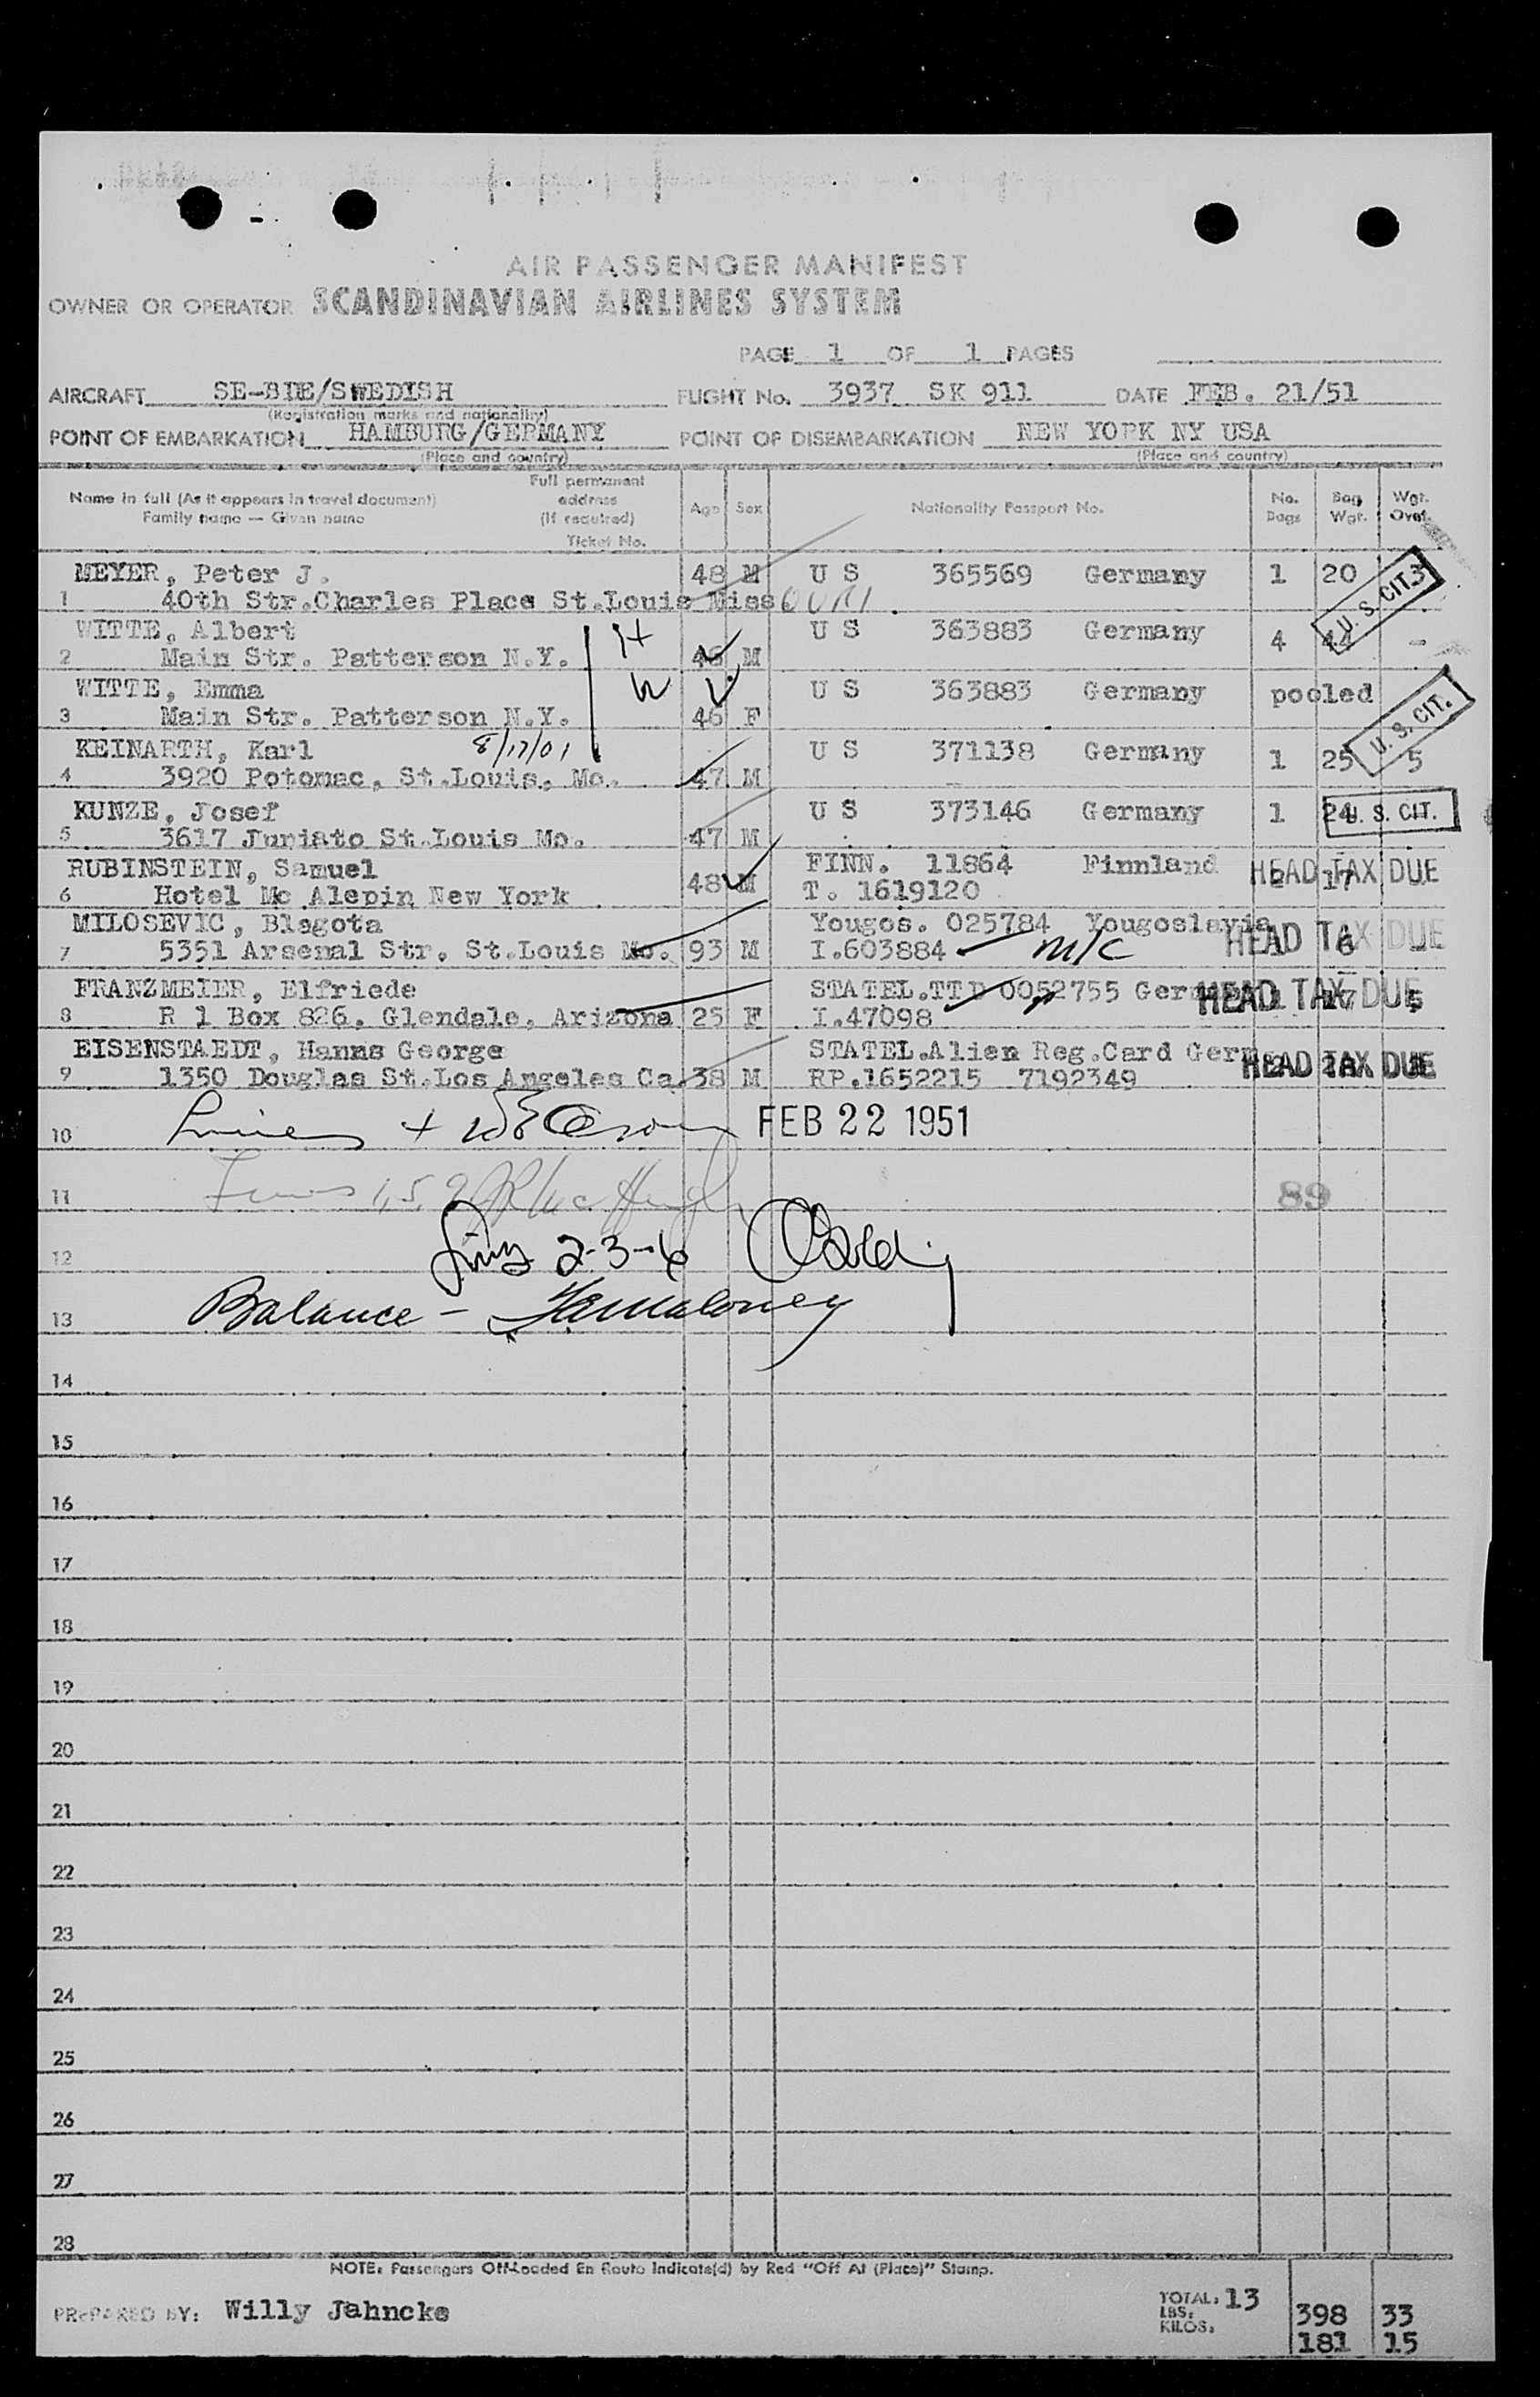 AIR PASSENGER MANIFEST
OWNER OR OPERATOR SCANDINAVIAN AIRLINES SYSTEM
PAGE 1 OF 1 PAGES
AIRCRAFT SE-BDE/SWEDISH FLIGHT No. 3937 SK 911 DATE FEB. 21/51
(Registration marks and nationality)
POINT OF EMBARKATION HAMBURG/GERMANY POINT OF DISEMBARKATION NEW YORK NY USA
(Place and country) (Place and country)
Name in full (As it appears in travel document) Family name — Given name Full permanent address (If required) Ticket No. Age Sex Nationality Passport No. No. Bags Bag Wgt. Wgt. Over.
MEYER, Peter J. 48 M U S 365569 Germany 1 20 3 U. S. CIT.
1 40th Str.Charles Place St.Louis Missouri.
WITTE, Albert H U S 363883 Germany 4 44 -
2 Main Str. Patterson N.Y. M
WITTE, Emma W U S 363883 Germany pooled
3 Main Str. Patterson N.Y. 46 F U. S. CIT.
KEINARTH, Karl 8/17/01 U S 371138 Germany 1 25 5
4 3920 Potomac, St.Louis, Mo. 47 M
KUNZE, Josef U S 373146 Germany 1 24 U. S. CIT.
5 3617 Juniato St.Louis Mo. 47 M
RUBINSTEIN, Samuel 48 M FINN. 11864 Finnland 2 17 - HEAD TAX DUE
6 Hotel Mc Alepin New York T. 1619120
MILOSEVIC, Blagota Yougos. 025784 Yougoslavia 6 - HEAD TAX DUE
7 5351 Arsenal Str. St.Louis Mo. 93 M I.603884 M/C
FRANZMEIER, Elfriede STATEL.TTD 0052755 Germany 1 17 5 HEAD TAX DUE
8 R 1 Box 826, Glendale, Arizona 25 F I.47098
EISENSTAEDT, Hanns George STATEL.Alien Reg.Card Germ HEAD TAX DUE
9 1350 Douglas St.Los Angeles Ca. 38 M RP.1652215 7192349
10 FEB 22 1951
11 89
12 2-3-6
13 Balance -
14
15
16
17
18
19
20
21
22
23
24
25
26
27
28
NOTE: Passengers Off-Loaded En Route Indicate(d) by Red "Off At (Place)" Stamp.
PREPARED BY: Willy Jahncke TOTAL: 13
LBS: 398 33
KILOS: 181 15